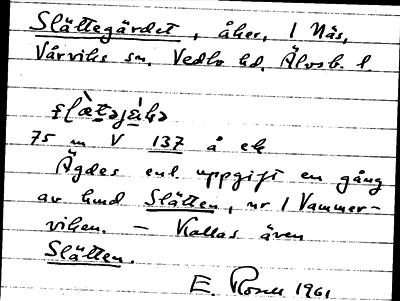 Slättegärdet, åker, 1 Näs,
Vårviks sn. Vedbo hd. Älvsb. l.
75 m V 137 å ek
Ägdes enl. uppgift en gång
av hmd Slätten, nr 1 Vammer-
viken. – Kallas även
Slätten.
E. Rosell 1961